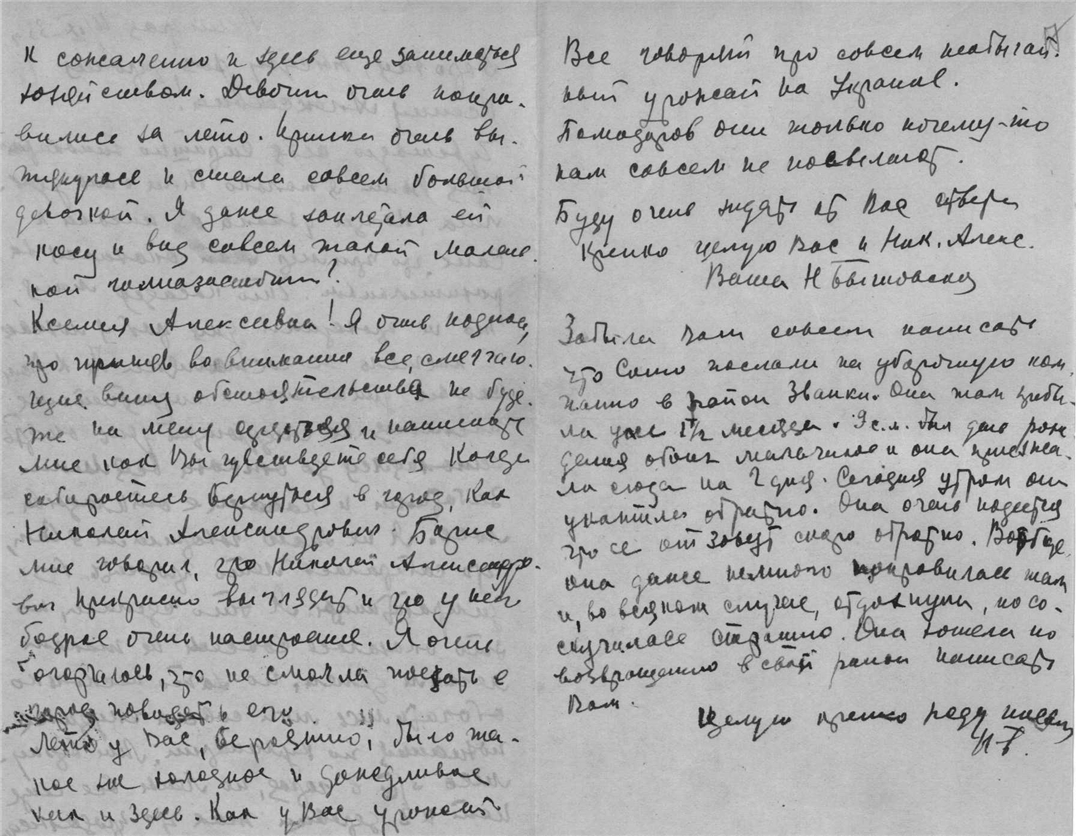 К сожалению и здесь еще заниматься
хозяйством. Девочки очень попра-
вились за лето. Иришка очень вы-
тянулась и стала совсем большой
девочкой. Я даже заплетала ей
косу и вид совсем такой малень-
кой гимназистки!
Ксения Алексеевна! Я очень надеюсь,
что приняв во внимание все, смягчаю-
щие вину обстоятельства не буде-
те на меня сердиться и напишете
мне как Вы чувствуете себя. Когда
собираетесь вернуться в город. Как
Николай Александрович. Борис
мне говорил, что Николай Александро-
вич прекрасно выглядит и что у него
бодрое очень настроение. Я очень
огорчалась, что не смогла поехать в
город повидать его.
Лето у Вас, вероятно, было та-
кое же холодное и дождливое
как и здесь. Как у Вас урожай.
Все говорят про совсем необычай-
ный урожай на Украине.
Помидоров они только почему-то
нам совсем не посылают.
Буду очень ждать от Вас ответа
Крепко целую Вас и Ник. Алекс.
Ваша Н
Забыла Вам совсем написать
что Сашу послали на уборочную кам-
панию в район Званки. Она там пробы-
ла уже 1½ месяца. 9 с.м. был день рож-
дения обоих мальчиков и она приезжа-
ла сюда на 2 дня. Сегодня утром они
укатили обратно. Она очень надеется
что ее отзовут скоро обратно. Вообще
она даже немного поправилась там
и, во всяком случае, отдохнула, но со-
скучилась страшно. Она хотела по
возвращению в свой район написать
Вам.
Целую крепко
Н.Б.